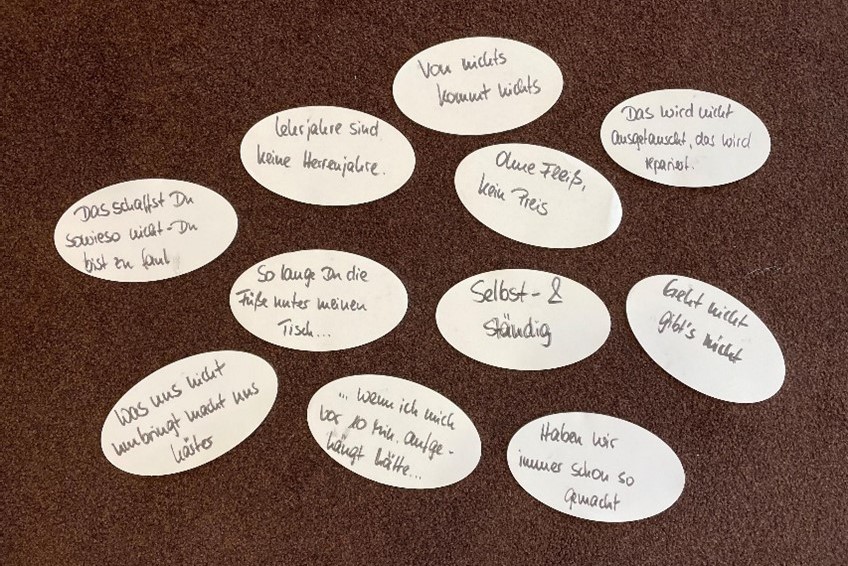 Von nichts
kommt nichts
Lehrjahre sind
keine Herrenjahre.
Das wird nicht
ausgetauscht, das wird
repariert.
Ohne Fleiß,
kein Preis
Das schaffst Du
sowieso nicht - Du
bist zu faul
So lange Du die
Füße unter meinen
Tisch...
Selbst- &
ständig
Geht nicht
gibt's nicht
Was uns nicht
umbringt macht uns
härter
... wenn ich mich
vor 10 Min. aufge-
hängt hätte...
Haben wir
immer schon so
gemacht